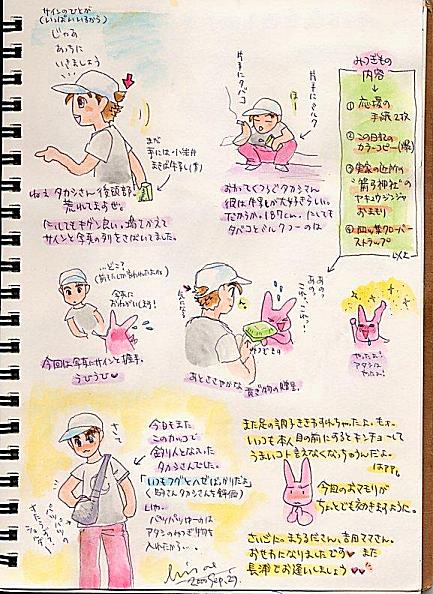 サインのひとが
(いっぱいいるから)
じゃあ
あっちに
いきましょう
まだ
手には小岩井
まきば牛乳(笑)
ねぇ タカシさん後頭部
荒れてますぜ。
にしてもキゲン良い。場をかえて
サインと写真の列をさばいてました。
片手にタバコ
片手にミルク
ほー
おわってくつろぐタカシさん
彼は牛乳が大好きらしい。
だからか。187cm。にしても
タバコとミルクフーのは
みつぎもの
内容
① 応援の
手紙2枚
② この日記の
カラーコピー(爆)
③ 実家の近所の
"箭弓神社"の
ヤキュウジンジャ
おまもり
④ 四ッ葉クローバー
ストラップ
以上
…どこ?
写真に
おねがいします!
今回は写真にサインと握手。
うひうひ♥
あのっ
これっ
あとささやかな 貢ぎ物の贈呈。
やったよ!
アタシは
やったよ!
さて
今日もまた
このカッコで
釣り人となった
タカシさんでした。
「いつもフグとヘゼばっかりだよ」
いや。
パツパツなのは
アタシのみつぎ物を
入れたから…。
2000 Sep. 29.
また足の調子をききそびれちゃったよ。もォ。
いつも本人目の前にするとキンチョーして
うまいコト言えなくなっちゃうんだよ。
今回のおマモリが
ちょっとでも効きますように。
さいごに。まちるださん、吉田ママさん
おせわになりました♥ また
長浦でお逢いしましょう♥♥